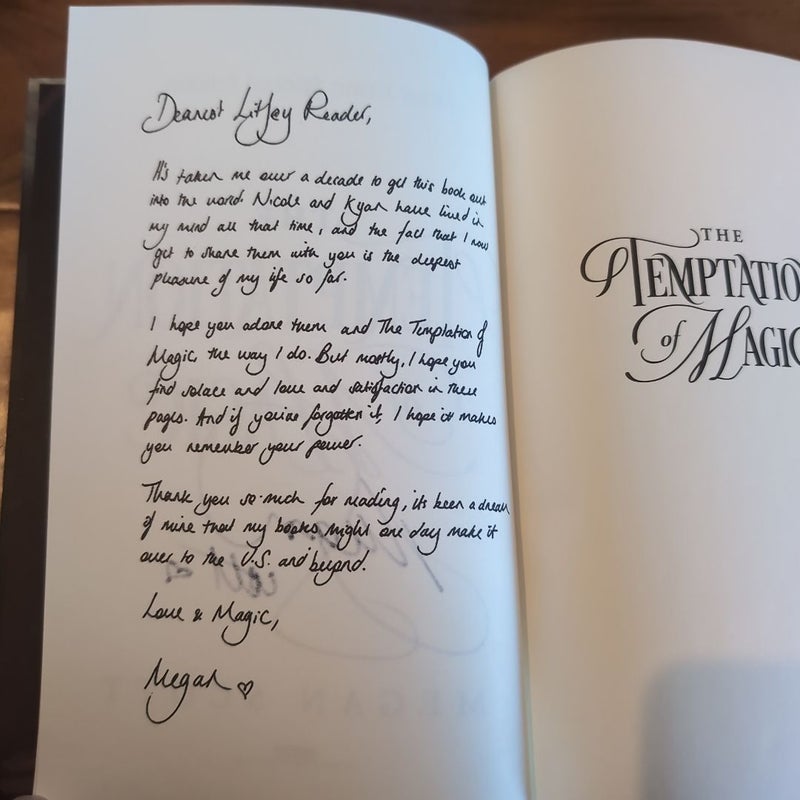 Dearest LitJoy Reader,
It's taken me over a decade to get this book out
into the world. Nicole and Kyan have lived in
my mind all that time, and the fact that I now
get to share them with you is the deepest
pleasure of my life so far.
I hope you adore them and The Temptation of
Magic the way I do. But mostly, I hope you
find solace and love and satisfaction in these
pages. And if you've forgotten it, I hope it makes
you remember your power.
Thank you so much for reading, its been a dream
of mine that my books might one day make it
over to the U.S. and beyond!
Love & Magic,
Megan
THE
TEMPTATIO
of MAGIC
MEGAN